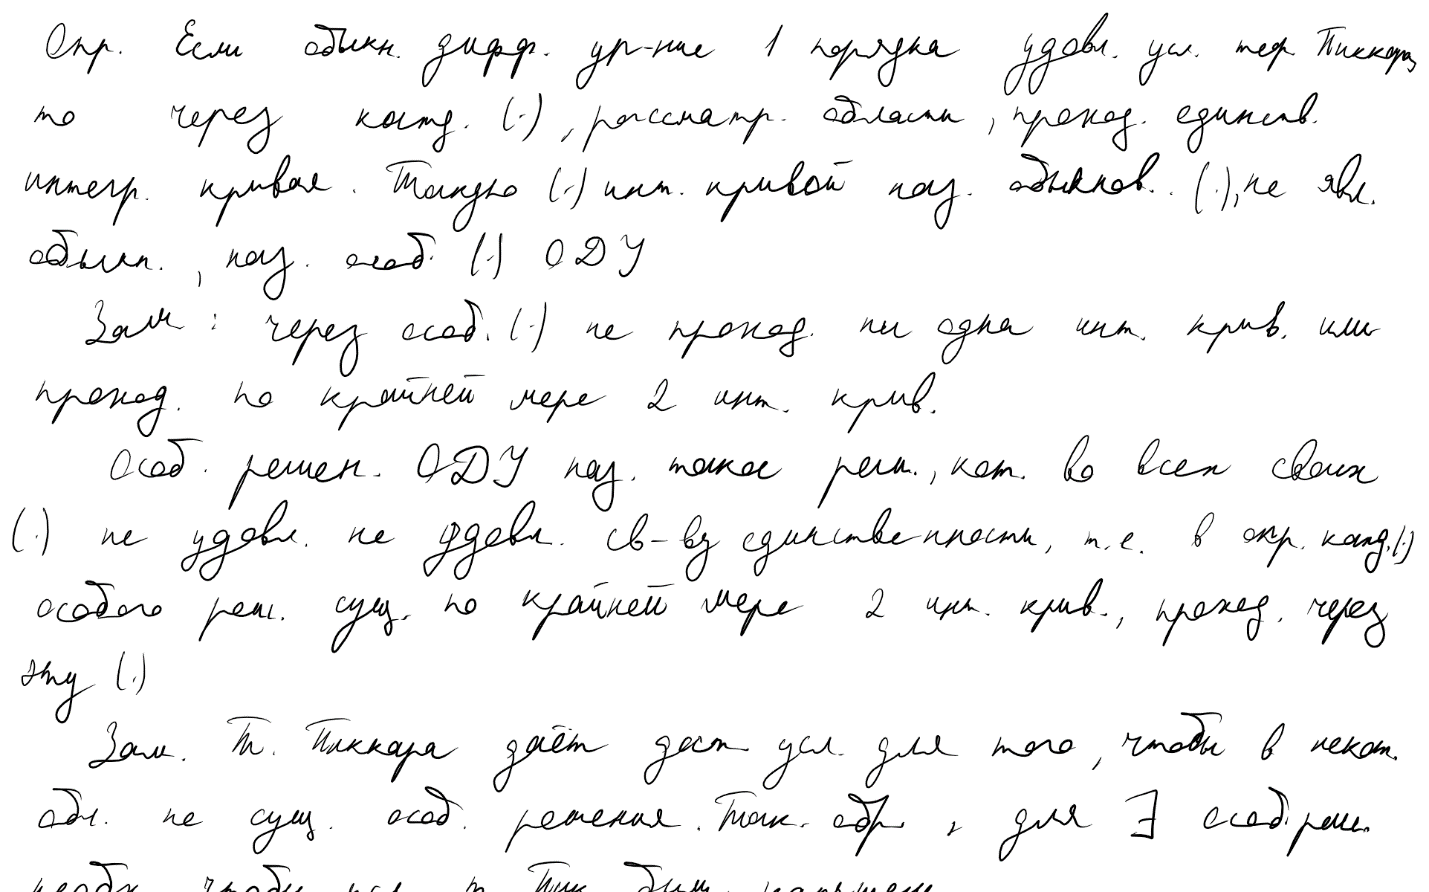 Опр. Если обыкн. дифф. ур-ние 1 порядка удовл. усл. теор. Пиккара,
то через кажд. (·), рассматр. области, проход. единств.
интегр. кривая. Такую (·) инт. кривой наз. обыкнов. (·), не явл.
обыкн., наз. особ. (·) ОДУ
Зам: через особ. (·) не проход. ни одна инт. крив. или
проход. по крайней мере 2 инт. крив.
Особ. решен. ОДУ наз. такое реш., кот. во всех своих
(·) не удовл. не удовл. св-ву единственности, т.е. в окр. кажд. (·)
особого реш. сущ. по крайней мере 2 инт. крив., проход. через
эту (·)
Зам. Т. Пиккара даёт дост усл. для того, чтобы в некот.
обл. не сущ. особ. решения. Так. обр, для ∃ особ. реш.
необх. чтобы усл. т. Пик. были нарушены